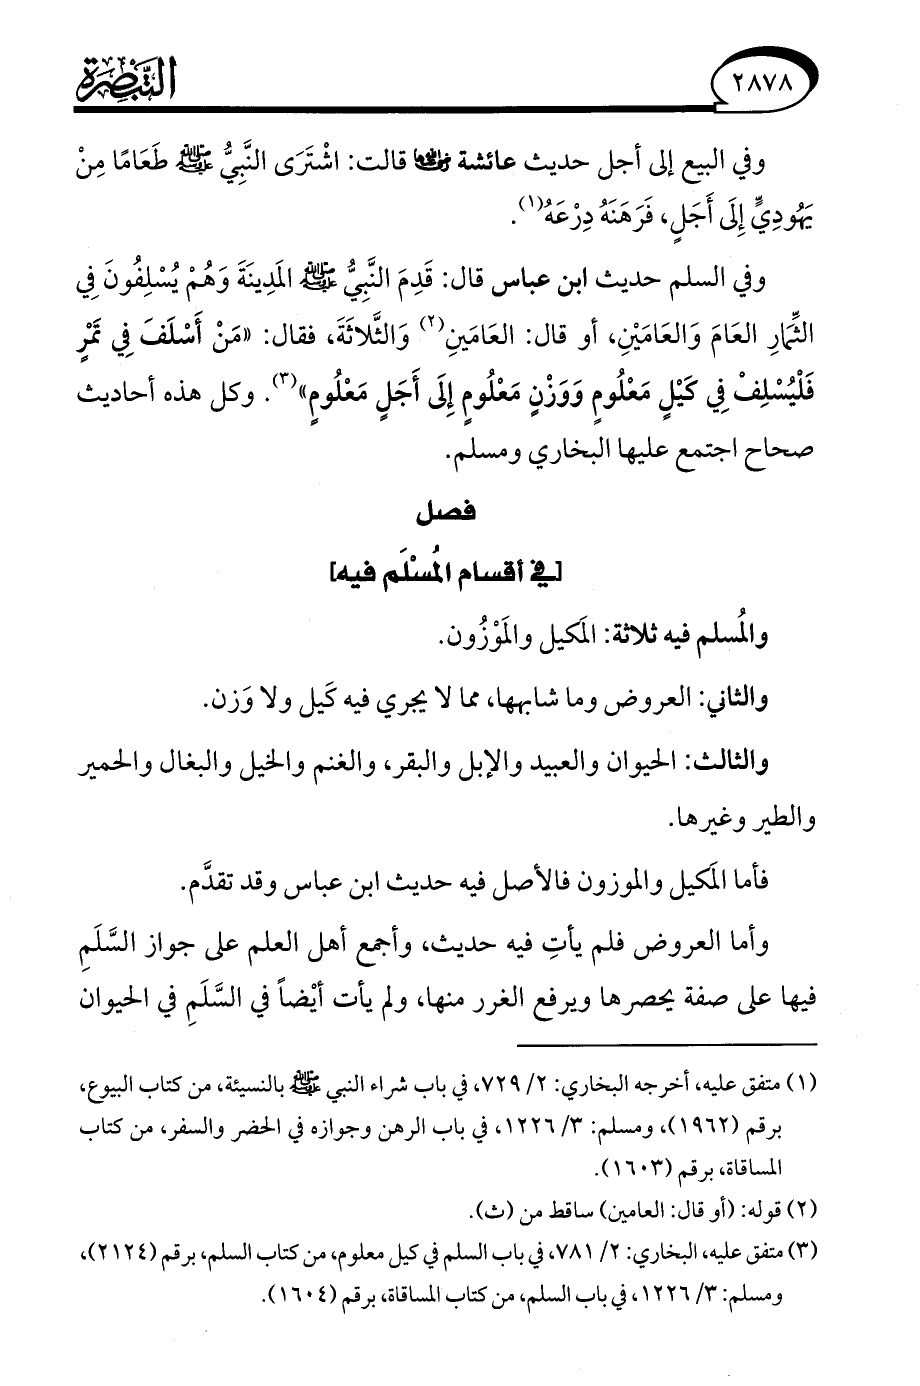 التبصرة
٢٨٧٨
وفي البيع إلى أجل حديث عائشة رضي الله عنها قالت: اشْتَرَى النَّبِيُّ ﷺ طَعَامًا مِنْ
يَهُودِيٍّ إِلَى أَجَلٍ، فَرَهَنَهُ دِرْعَهُ(١).
وفي السلم حديث ابن عباس قال: قَدِمَ النَّبِيُّ ﷺ المَدِينَةَ وَهُمْ يُسْلِفُونَ فِي
الثِّمَارِ العَامَ وَالعَامَيْنِ، أو قال: العَامَينِ(٢) وَالثَّلاثَةَ، فقال: «مَنْ أَسْلَفَ فِي تَمْرٍ
فَلْيُسْلِفْ فِي كَيْلٍ مَعْلُومٍ وَوَزْنٍ مَعْلُومٍ إِلَى أَجَلٍ مَعْلُومٍ»(٣). وكل هذه أحاديث
صحاح اجتمع عليها البخاري ومسلم.
فصل
[في أقسام المُسْلَم فيه]
والمُسلم فيه ثلاثة: المَكيل والمَوْزُون.
والثاني: العروض وما شابهها، مما لا يجري فيه كَيل ولا وَزن.
والثالث: الحيوان والعبيد والإبل والبقر، والغنم والخيل والبغال والحمير
والطير وغيرها.
فأما المَكيل والموزون فالأصل فيه حديث ابن عباس وقد تقدَّم.
وأما العروض فلم يأتِ فيه حديث، وأجمع أهل العلم على جواز السَّلَمِ
فيها على صفة يحصرها ويرفع الغرر منها، ولم يأت أيْضاً في السَّلَمِ في الحيوان
(١) متفق عليه، أخرجه البخاري: ٢/ ٧٢٩، في باب شراء النبي ﷺ بالنسيئة، من كتاب البيوع،
برقم (١٩٦٢)، ومسلم: ٣/ ١٢٢٦، في باب الرهن وجوازه في الحضر والسفر، من كتاب
المساقاة، برقم (١٦٠٣).
(٢) قوله: (أو قال: العامين) ساقط من (ث).
(٣) متفق عليه، البخاري: ٢/ ٧٨١، في باب السلم في كيل معلوم، من كتاب السلم، برقم (٢١٢٤)،
ومسلم: ٣/ ١٢٢٦، في باب السلم، من كتاب المساقاة، برقم (١٦٠٤).